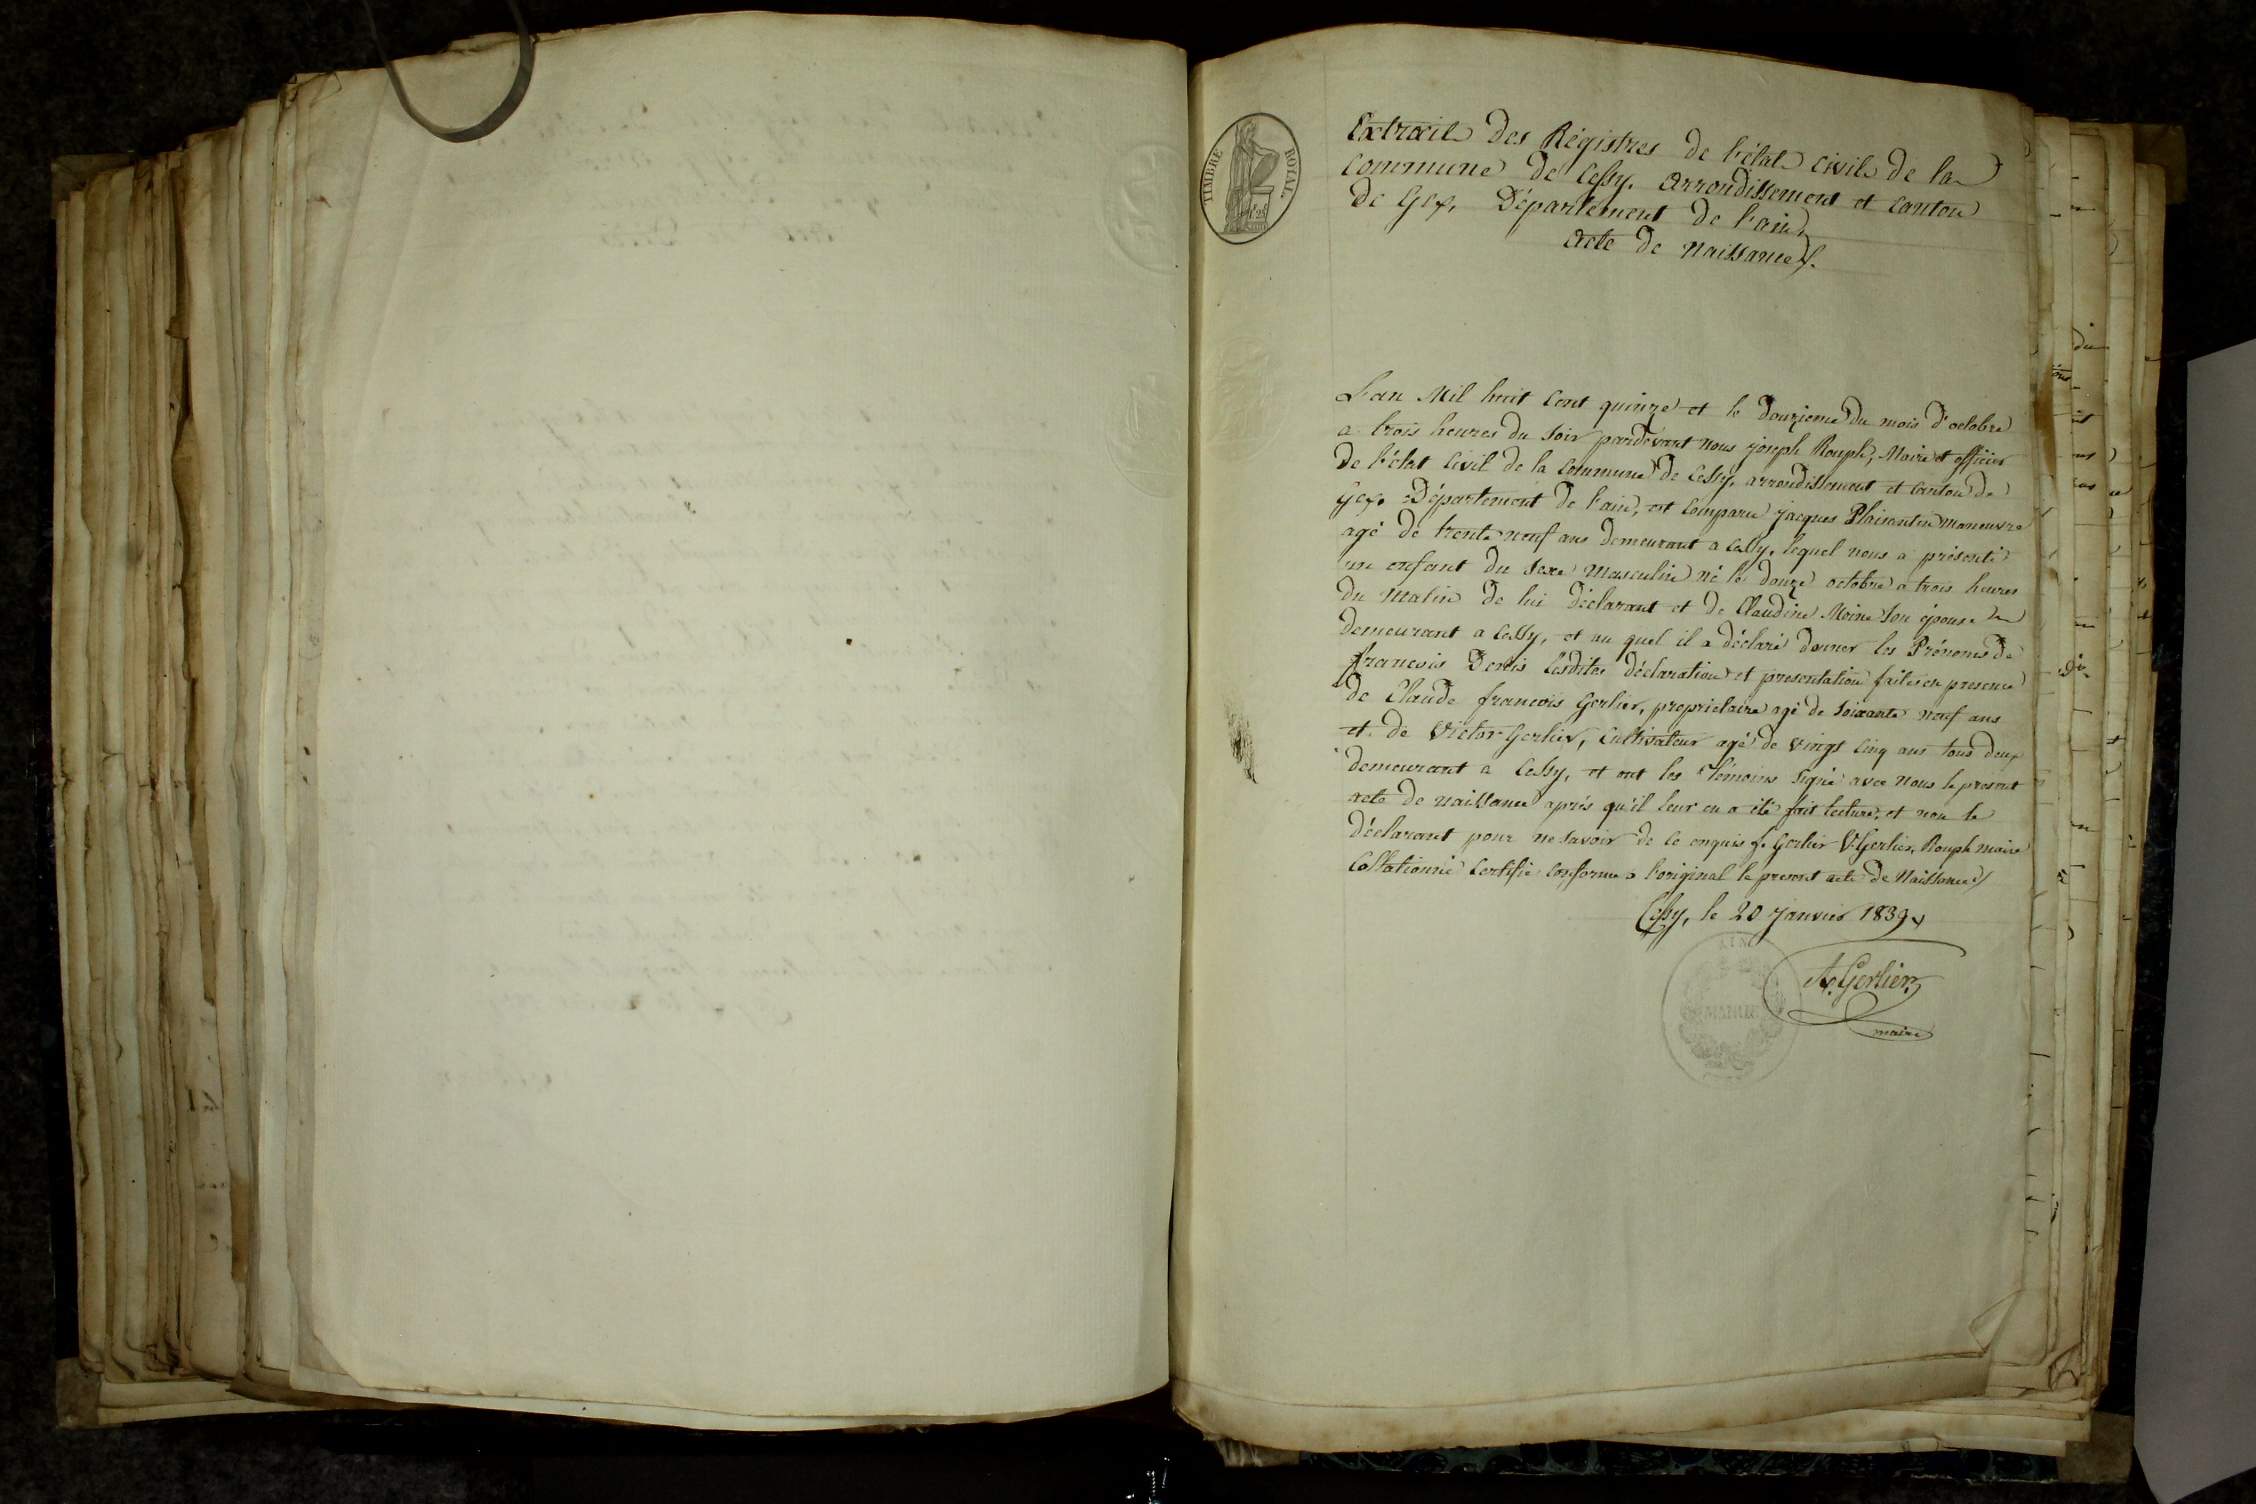 TIMBRE ROYAL
Extrait des Régistres de l'état civil de la
commune de Cessy. Arrondissement et canton
de Gex, Département de l'ain,
Acte de Naissance.
L'an Mil huit Cent quinze et le douzieme du mois d'octobre
a trois heures du soir pardevant nous joseph Rouph, Maire et officier
de l'état Civil de la Commune de Cessy, arrondissement et Canton de
Gex. Département de l'ain, est Comparu jacques Plaisantin manouvre
agé de trente neuf ans demeurant a Cessy, lequel nous a présenté
un enfant du sexe Masculin né le douze octobre a trois heures
du Matin de lui déclarant et de Claudine Moine son épouse
demeurant a Cessy, et au quel il a déclaré donner les Prénoms de
francois Denis lesdites déclaration et presentation faites en presence
de Claude francois Gerlier, proprietaire agé de soixante neuf ans
et de Victor Gerlier, Cultivateur agé de vingt Cinq ans tous deux
demeurant a Cessy, et ont les témoins signé avec nous le present
acte de naissance aprés qu'il leur en a été fait lecture, et non le
déclarant pour ne savoir de ce enquis f. Gerlier V. Gerlier, Rouph maire
Collationné Certifié conforme a l'original le present acte de Naissance
Cessy, le 20 janvier 1839
AIN
MAIRIE
Gerlier
maire